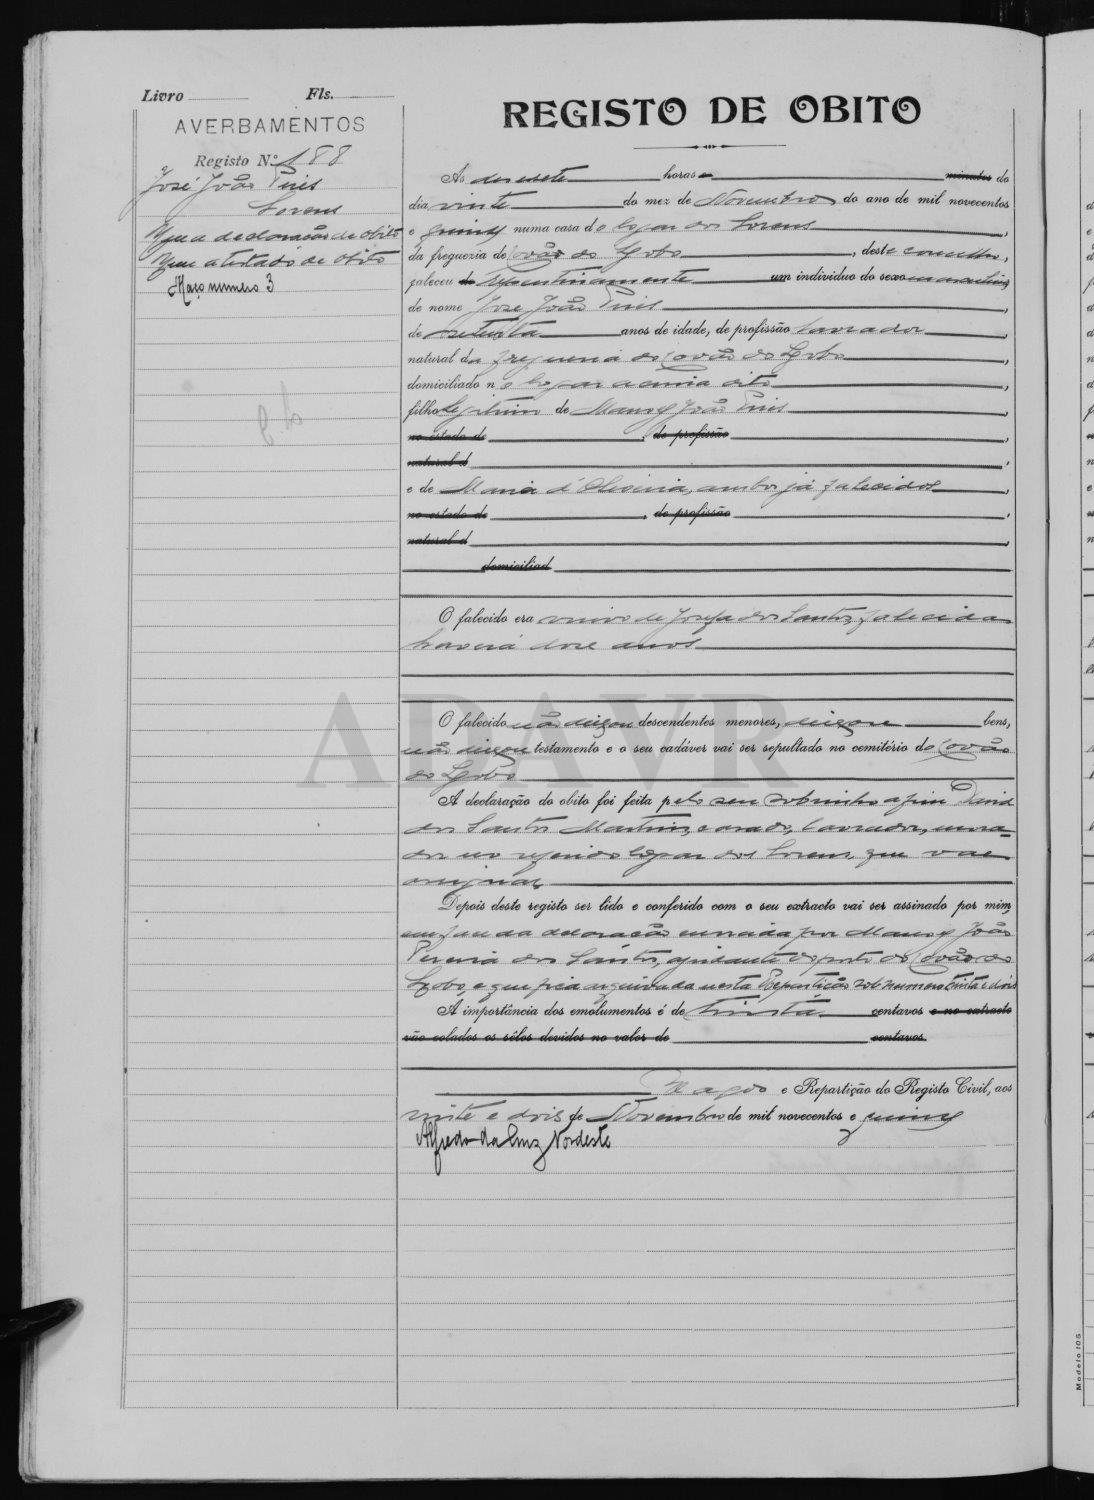 Livro Fls.
AVERBAMENTOS
Registo Nº 188
José João Pires
Lorens
uma declaração de obito
um atestado de obito
Maço numero 3
REGISTO DE OBITO
Ás desesete horas e minutos do
dia vinte do mez de Novembro do ano de mil novecentos
e quinze numa casa do logar dos Lorens,
da freguezia de Covão do Lobo, deste concelho,
faleceu de repentinamente um individuo do sexo masculino
de nome José João Pires,
de setenta anos de idade, de profissão lavrador,
natural da freguesia do Covão do Lobo,
domiciliado no logar acima dito,
filho legitimo de Manoel João Pires,
no estado de, de profissão,
natural d,
e de Maria d'Oliveira, ambos já falecidos,
no estado de, de profissão,
natural d,
domiciliad
O falecido era viuvo de Josefa dos Santos, falecida
haverá dose anos
O falecido não deixou descendentes menores, deixou bens,
não deixou testamento e o seu cadáver vai ser sepultado no cemitério do Covão
do Lobo
A declaração do obito foi feita pelo seu sobrinho afim David
dos Santos Martins, casado, lavrador, mora-
dor no referido logar dos Lorens, que vae
assignar,
Depois deste registo ser lido e conferido com o seu extracto vai ser assinado por mim,
em face da declaração enviada por Manoel João
Pereira dos Santos, ajudante do posto do Covão do
Lobo, e que fica arquivada nesta Repartição sob numero trinta e dois
A importância dos emolumentos é de trinta centavos e no extracto
vão colados os sêlos devidos no valor de centavos.
Vagos e Repartição do Registo Civil, aos
vinte e dois de Novembro de mil novecentos e quinze
Alfredo da Cruz Nordeste
ADAVR
Modelo 105